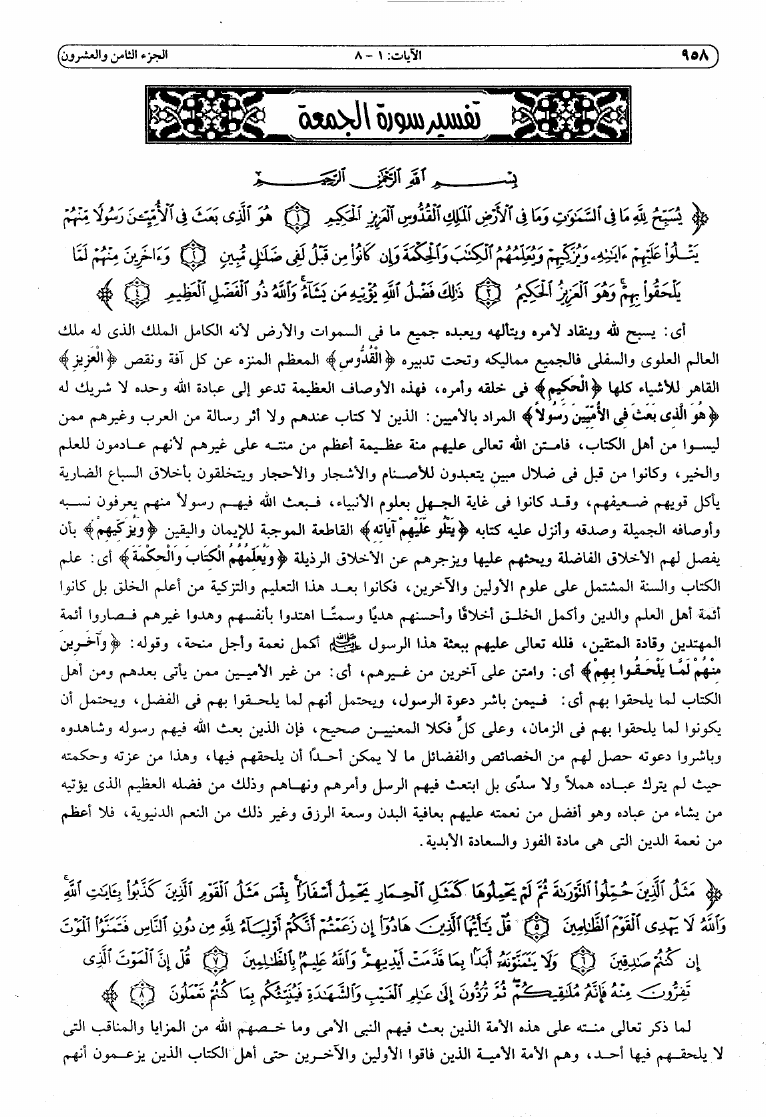 ٩٥٨ الآيات: ١ - ٨ الجزء الثامن والعشرون
تفسير سورة الجمعة
بِسْمِ اللَّهِ الرَّحْمَٰنِ الرَّحِيمِ
﴿ يُسَبِّحُ لِلَّهِ مَا فِي السَّمَٰوَٰتِ وَمَا فِي الْأَرْضِ الْمَلِكِ الْقُدُّوسِ الْعَزِيزِ الْحَكِيمِ ۝١ هُوَ الَّذِي بَعَثَ فِي الْأُمِّيِّـۧنَ رَسُولًا مِّنْهُمْ
يَتْلُوا۟ عَلَيْهِمْ ءَايَٰتِهِۦ وَيُزَكِّيهِمْ وَيُعَلِّمُهُمُ الْكِتَٰبَ وَالْحِكْمَةَ وَإِن كَانُوا۟ مِن قَبْلُ لَفِي ضَلَٰلٍ مُّبِينٍ ۝٢ وَءَاخَرِينَ مِنْهُمْ لَمَّا
يَلْحَقُوا۟ بِهِمْ ۚ وَهُوَ الْعَزِيزُ الْحَكِيمُ ۝٣ ذَٰلِكَ فَضْلُ اللَّهِ يُؤْتِيهِ مَن يَشَآءُ ۚ وَاللَّهُ ذُو الْفَضْلِ الْعَظِيمِ ۝٤ ﴾
أى: يسبح لله وينقاد لأمره ويتألهه ويعبده جميع ما فى السموات والأرض لأنه الكامل الملك الذى له ملك
العالم العلوى والسفلى فالجميع مماليكه وتحت تدبيره ﴿الْقُدُّوسِ﴾ المعظم المنزه عن كل آفة ونقص ﴿الْعَزِيزِ﴾
القاهر للأشياء كلها ﴿الْحَكِيمِ﴾ فى خلقه وأمره، فهذه الأوصاف العظيمة تدعو إلى عبادة الله وحده لا شريك له
﴿هُوَ الَّذِي بَعَثَ فِي الأُمِّيِّينَ رَسُولاً﴾ المراد بالأميين: الذين لا كتاب عندهم ولا أثر رسالة من العرب وغيرهم ممن
ليسوا من أهل الكتاب، فامتن الله تعالى عليهم منة عظيمة أعظم من منته على غيرهم لأنهم عادمون للعلم
والخير، وكانوا من قبل فى ضلال مبين يتعبدون للأصنام والأشجار والأحجار ويتخلقون بأخلاق السباع الضارية
يأكل قويهم ضعيفهم، وقد كانوا فى غاية الجهل بعلوم الأنبياء، فبعث الله فيهم رسولاً منهم يعرفون نسبه
وأوصافه الجميلة وصدقه وأنزل عليه كتابه ﴿يَتْلُو عَلَيْهِمْ آيَاتِهِ﴾ القاطعة الموجبة للإيمان واليقين ﴿وَيُزَكِّيهِمْ﴾ بأن
يفصل لهم الأخلاق الفاضلة ويحثهم عليها ويزجرهم عن الأخلاق الرذيلة ﴿وَيُعَلِّمُهُمُ الْكِتَابَ وَالْحِكْمَةَ﴾ أى: علم
الكتاب والسنة المشتمل على علوم الأولين والآخرين، فكانوا بعد هذا التعليم والتزكية من أعلم الخلق بل كانوا
أئمة أهل العلم والدين وأكمل الخلق أخلاقًا وأحسنهم هديًا وسمتًا اهتدوا بأنفسهم وهدوا غيرهم فصاروا أئمة
المهتدين وقادة المتقين، فلله تعالى عليهم ببعثة هذا الرسول ﷺ أكمل نعمة وأجل منحة، وقوله: ﴿وَآخَرِينَ
مِنْهُمْ لَمَّا يَلْحَقُوا بِهِمْ﴾ أى: وامتن على آخرين من غيرهم، أى: من غير الأميين ممن يأتى بعدهم ومن أهل
الكتاب لما يلحقوا بهم أى: فيمن باشر دعوة الرسول، ويحتمل أنهم لما يلحقوا بهم فى الفضل، ويحتمل أن
يكونوا لما يلحقوا بهم فى الزمان، وعلى كلٍّ فكلا المعنيين صحيح، فإن الذين بعث الله فيهم رسوله وشاهدوه
وباشروا دعوته حصل لهم من الخصائص والفضائل ما لا يمكن أحدًا أن يلحقهم فيها، وهذا من عزته وحكمته
حيث لم يترك عباده هملاً ولا سدًى بل ابتعث فيهم الرسل وأمرهم ونهاهم وذلك من فضله العظيم الذى يؤتيه
من يشاء من عباده وهو أفضل من نعمته عليهم بعافية البدن وسعة الرزق وغير ذلك من النعم الدنيوية، فلا أعظم
من نعمة الدين التى هى مادة الفوز والسعادة الأبدية.
﴿ مَثَلُ الَّذِينَ حُمِّلُوا۟ التَّوْرَىٰةَ ثُمَّ لَمْ يَحْمِلُوهَا كَمَثَلِ الْحِمَارِ يَحْمِلُ أَسْفَارًۢا ۚ بِئْسَ مَثَلُ الْقَوْمِ الَّذِينَ كَذَّبُوا۟ بِـَٔايَٰتِ اللَّهِ ۚ
وَاللَّهُ لَا يَهْدِي الْقَوْمَ الظَّٰلِمِينَ ۝٥ قُلْ يَٰٓأَيُّهَا الَّذِينَ هَادُوٓا۟ إِن زَعَمْتُمْ أَنَّكُمْ أَوْلِيَآءُ لِلَّهِ مِن دُونِ النَّاسِ فَتَمَنَّوُا۟ الْمَوْتَ
إِن كُنتُمْ صَٰدِقِينَ ۝٦ وَلَا يَتَمَنَّوْنَهُۥٓ أَبَدًۢا بِمَا قَدَّمَتْ أَيْدِيهِمْ ۚ وَاللَّهُ عَلِيمٌۢ بِالظَّٰلِمِينَ ۝٧ قُلْ إِنَّ الْمَوْتَ الَّذِي
تَفِرُّونَ مِنْهُ فَإِنَّهُۥ مُلَٰقِيكُمْ ۖ ثُمَّ تُرَدُّونَ إِلَىٰ عَٰلِمِ الْغَيْبِ وَالشَّهَٰدَةِ فَيُنَبِّئُكُم بِمَا كُنتُمْ تَعْمَلُونَ ۝٨ ﴾
لما ذكر تعالى منته على هذه الأمة الذين بعث فيهم النبى الأمى وما خصهم الله من المزايا والمناقب التى
لا يلحقهم فيها أحد، وهم الأمة الأمية الذين فاقوا الأولين والآخرين حتى أهل الكتاب الذين يزعمون أنهم